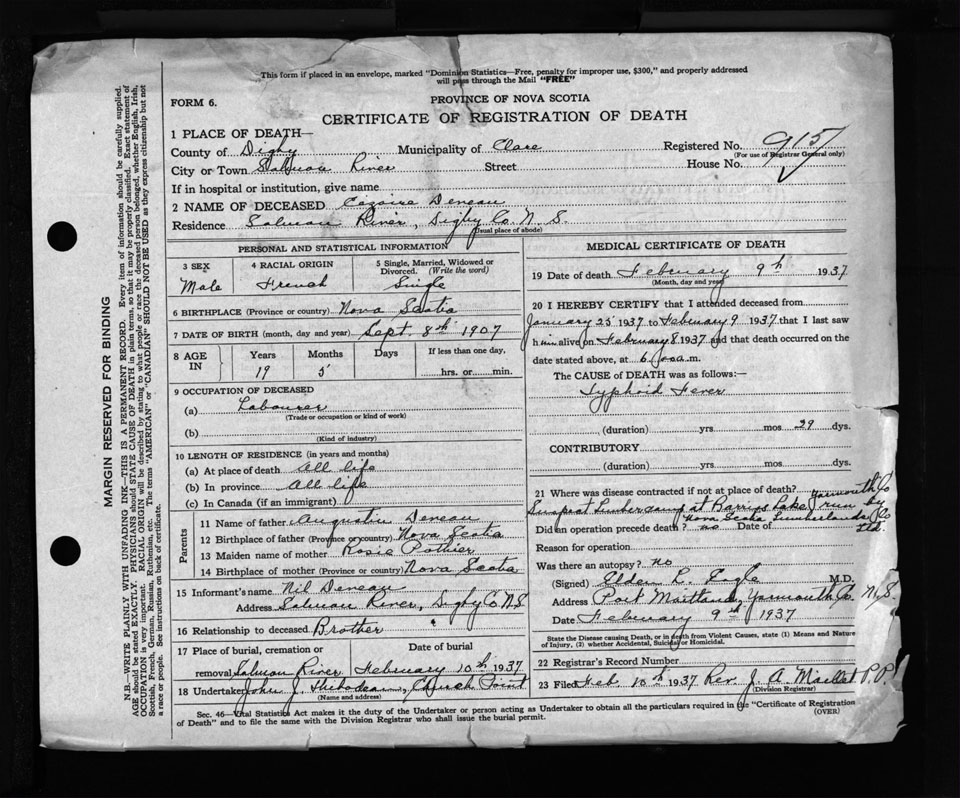 This form if placed in an envelope, marked "Dominion Statistics—Free, penalty for improper use, $300," and properly addressed
will pass through the Mail "FREE"
FORM 6.
PROVINCE OF NOVA SCOTIA
CERTIFICATE OF REGISTRATION OF DEATH
1 PLACE OF DEATH—
County of Digby Municipality of Clare Registered No. 915
(For use of Registrar General only)
City or Town Salmon River Street House No.
If in hospital or institution, give name
2 NAME OF DECEASED Cezaire Deneau
Residence Salmon River, Digby Co. N. S.
(Usual place of abode)
PERSONAL AND STATISTICAL INFORMATION
3 SEX
Male
4 RACIAL ORIGIN
French
5 Single, Married, Widowed or
Divorced. (Write the word)
Single
6 BIRTHPLACE (Province or country) Nova Scotia
7 DATE OF BIRTH (month, day and year) Sept. 8th 1907
8 AGE
IN
Years Months Days If less than one day,
19 5 hrs. or min.
9 OCCUPATION OF DECEASED
(a) Labourer
(Trade or occupation or kind of work)
(b)
(Kind of industry)
10 LENGTH OF RESIDENCE (in years and months)
(a) At place of death All life
(b) In province All life
(c) In Canada (if an immigrant)
Parents
11 Name of father Augustin Deneau
12 Birthplace of father (Province or country) Nova Scotia
13 Maiden name of mother Rosie Pothier
14 Birthplace of mother (Province or country) Nova Scotia
15 Informant's name Nil Deneau
Address Salmon River, Digby Co N S
16 Relationship to deceased Brother
17 Place of burial, cremation or Date of burial
removal Salmon River February 10th 1937
18 Undertaker John J. Thibodeau, Church Point
(Name and address)
MEDICAL CERTIFICATE OF DEATH
19 Date of death February 9th 1937
(Month, day and year)
20 I HEREBY CERTIFY that I attended deceased from
January 25 1937 to February 9 1937 that I last saw
him alive on February 8 1937 and that death occurred on the
date stated above, at 6 a.m.
The CAUSE of DEATH was as follows:—
Typhoid Fever
(duration) yrs mos 29 dys.
CONTRIBUTORY
(duration) yrs mos dys.
21 Where was disease contracted if not at place of death? Yarmouth Co
Lumber camp at Barrys Lake run by
Nova Scotia Co
Ltd.
Did an operation precede death? no Date of
Reason for operation
Was there an autopsy? no
(Signed) Elden L. Cogle M.D.
Address Port Maitland, Yarmouth Co. N. S.
Date February 9th 1937
State the Disease causing Death, or in death from Violent Causes, state (1) Means and Nature
of Injury, (2) whether Accidental, Suicidal or Homicidal.
22 Registrar's Record Number
23 Filed Feb 10th 1937 Rev. J. A. Maillet P.P.
(Division Registrar)
Sec. 46—Vital Statistics Act makes it the duty of the Undertaker or person acting as Undertaker to obtain all the particulars required in the "Certificate of Registration
of Death" and to file the same with the Division Registrar who shall issue the burial permit.
(OVER)
MARGIN RESERVED FOR BINDING
N.B.—WRITE PLAINLY WITH UNFADING INK—THIS IS A PERMANENT RECORD. Every item of information should be carefully supplied.
AGE should be stated EXACTLY. PHYSICIANS should STATE CAUSE OF DEATH in plain terms, so that it may be properly classified. Exact statement of
OCCUPATION is very important. RACIAL ORIGIN will be described by stating to what people or race the deceased person belonged, whether English, Irish,
Scottish, French, German, Russian, Ruthenian, etc. The terms "AMERICAN" or "CANADIAN" SHOULD NOT BE USED as they express citizenship but not
a race or people. See instructions on back of certificate.